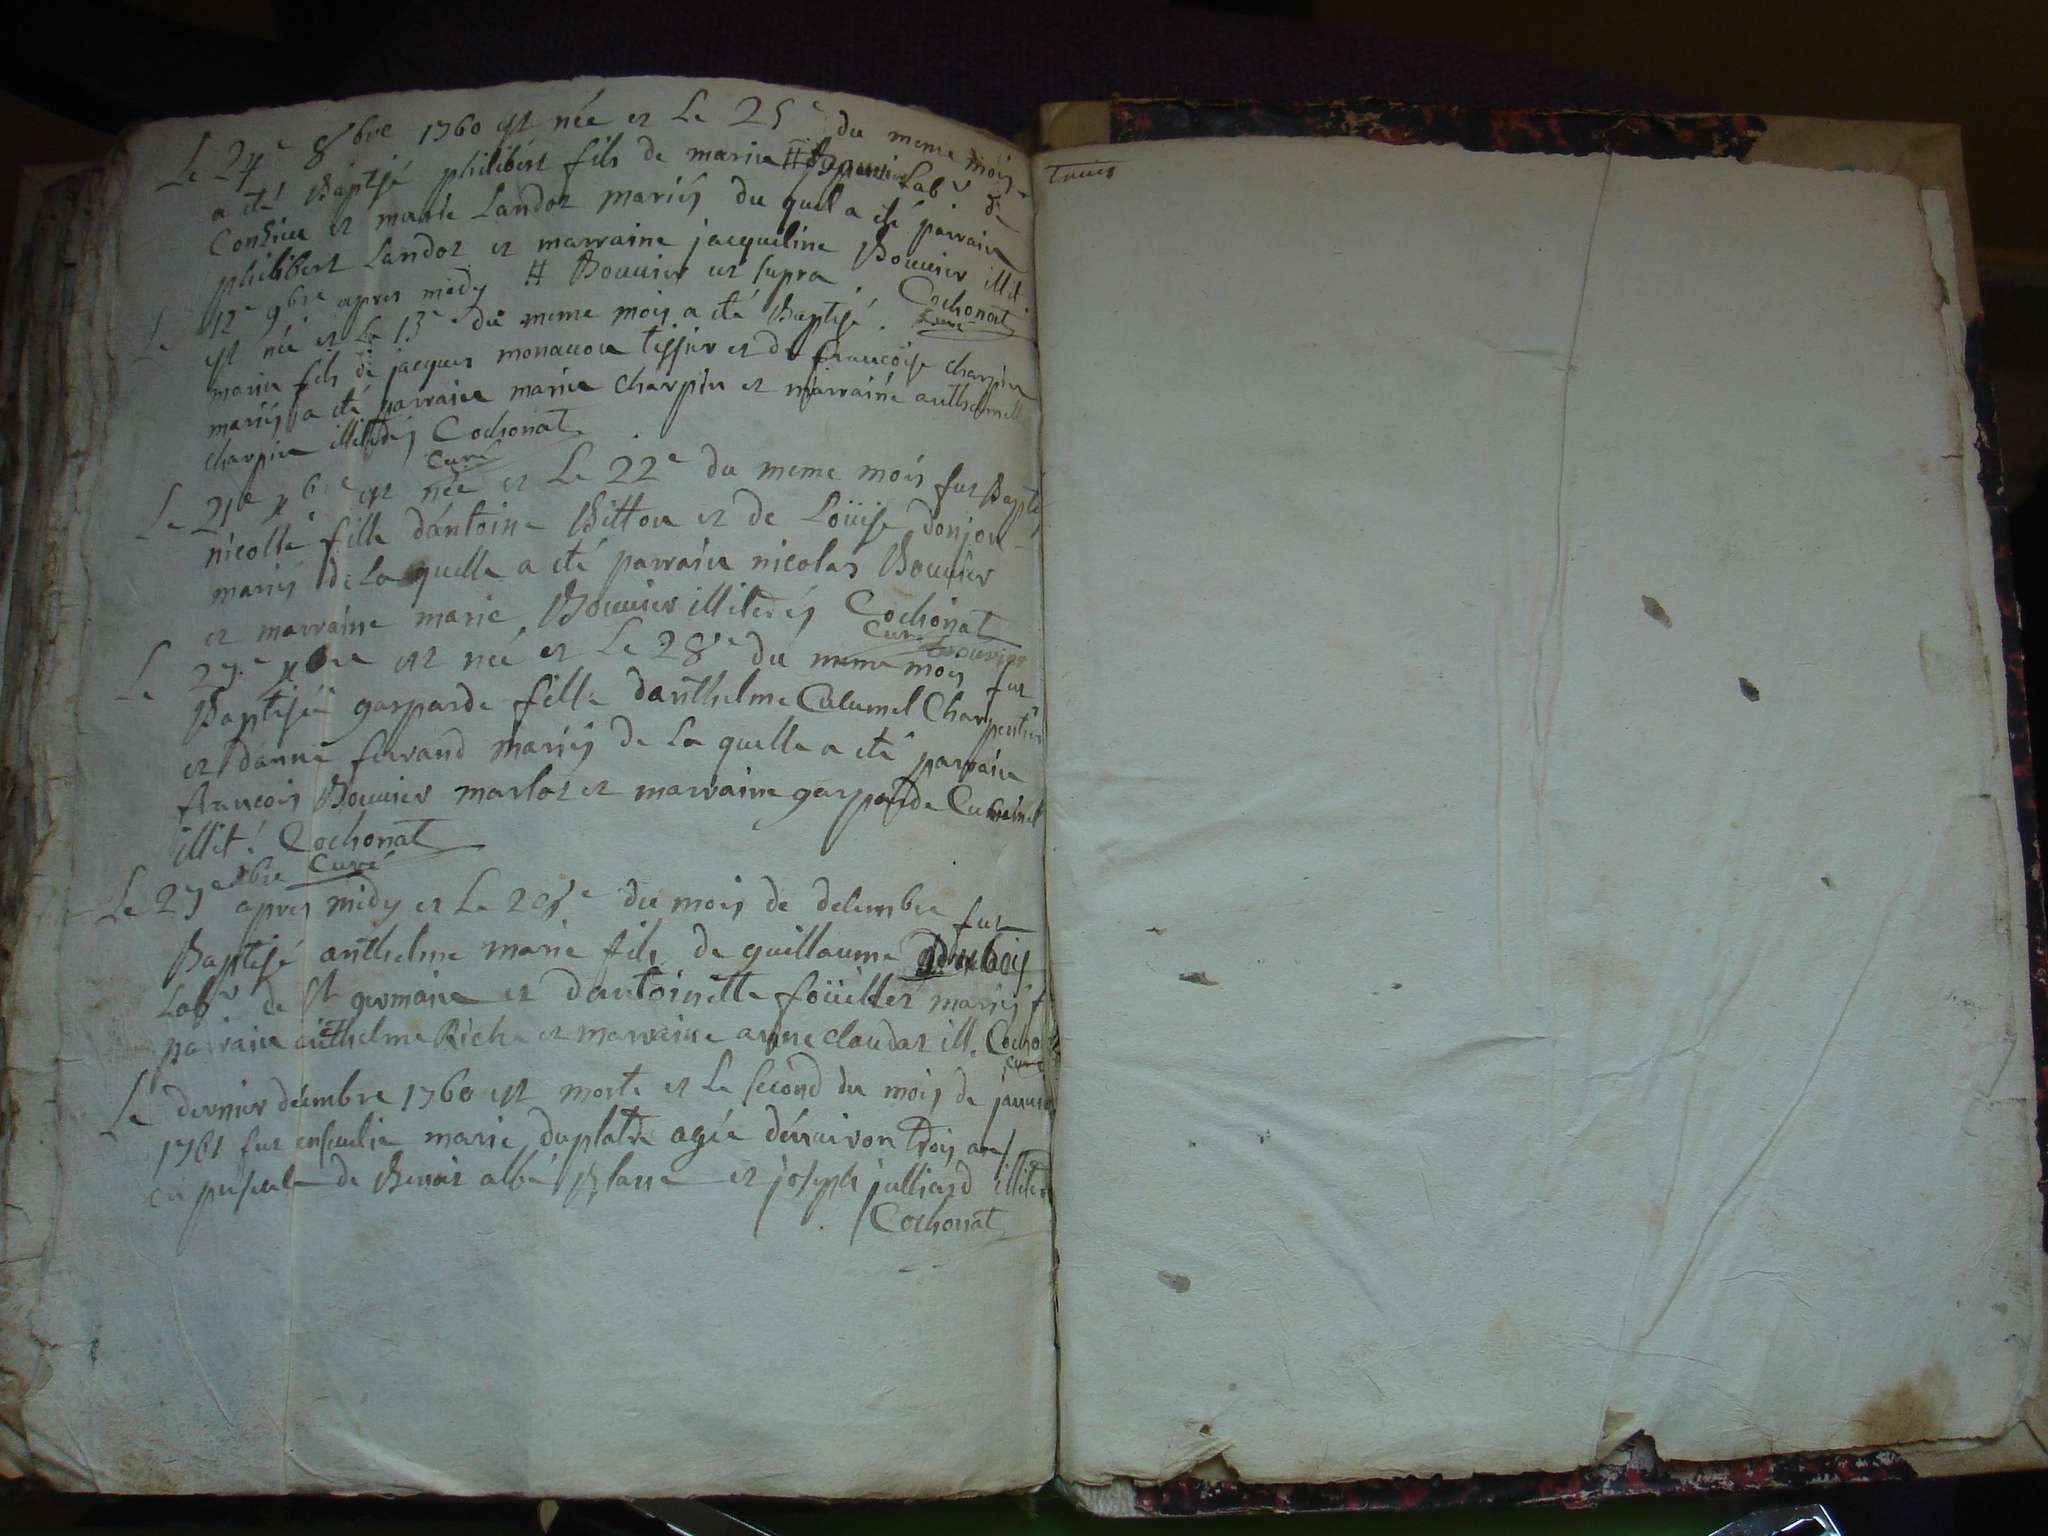 Le 24e 8bre 1760 est née et Le 25e du meme mois
a eté Baptisé philibert fils de marin # Labr de
Conzieu et marie Landot mariés du quel a eté parrain
philibert Landot et marraine jacqueline Bouvier illit.
# Bouvier ut supra Cochonat
curé
Le 12e 9bre apres midy
est née et Le 13e du meme mois a eté Baptisé
marin fils de jacques tissier et de francoise charpin
mariés a eté parrain marin charpin et marraine anthelmette
charpin illiterés Cochonat
Curé
Le 21e xbre est née et Le 22e du meme mois fut Baptisé
nicolle fille d'antoine Bitton et de Loüise donjon
mariés de La quelle a eté parrain nicolas Bouvier
et marraine marie Bouvier illiterés Cochonat
Curé
Le 27e xbre est née et Le 28e du meme mois fut
Baptisée gasparde fille danthelme Calumel Charpentier
et danne ferrand mariés de La quelle a eté parrain
francois Bouvier marlot et marraine gasparde
illit. Cochonat
Curé
Le 27e xbre apres midy et Le 28e du mois de decembre fut
Baptisé anthelme marie fils de guillaume Dubois
Labr de St germain et dantoinette foüillet mariés
parrain anthelme Riche et marraine anne claudat ill. Cochonat
Curé
Le dernier décembre 1760 est morte et Le second du mois de janvier
1761 fut ensevelie marie duplatre agée d'environ trois ans
en presence de Benoit et joseph julliard illiterés
Cochonat